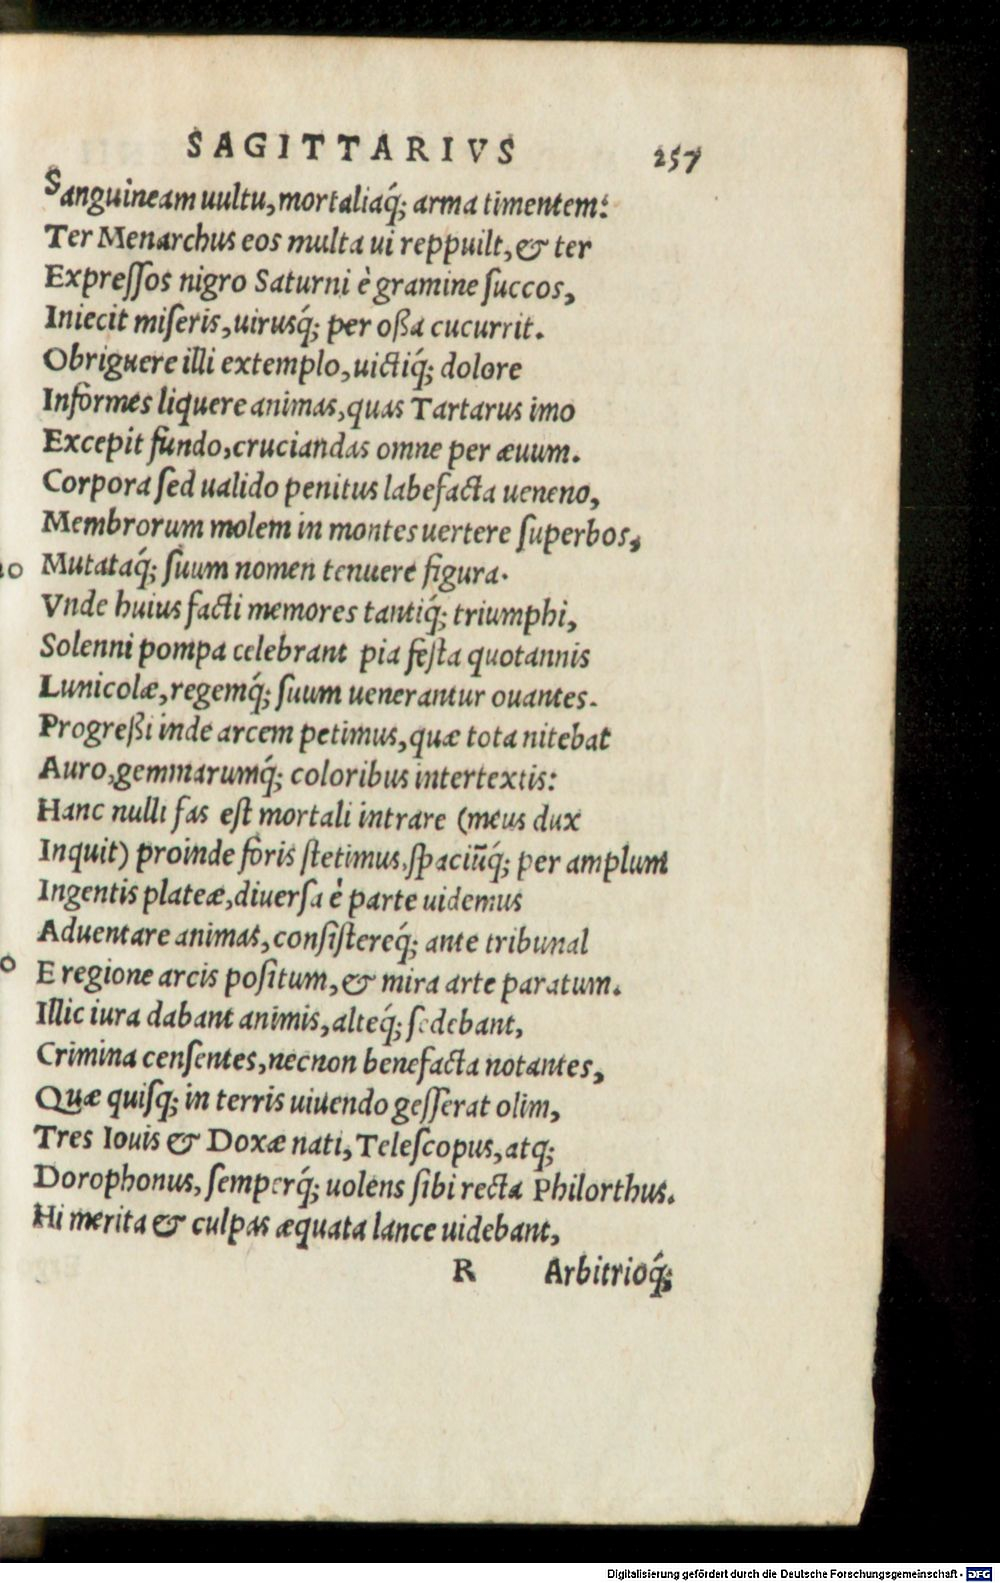 SAGITTARIVS 257
Sanguineam uultu, mortaliaq́; arma timentem:
Ter Menarchus eos multa ui reppuilt, & ter
Expreſſos nigro Saturni è gramine ſuccos,
Iniecit miſeris, uirusq́; per oßa cucurrit.
Obriguere illi extemplo, uictiq́; dolore
Informes liquere animas, quas Tartarus imo
Excepit fundo, cruciandas omne per æuum.
Corpora ſed ualido penitus labefacta ueneno,
Membrorum molem in montes uertere ſuperbos,
Mutataq́; ſuum nomen tenuere figura.
Vnde huius facti memores tantiq́; triumphi,
Solenni pompa celebrant pia feſta quotannis
Lunicolæ, regemq́; ſuum uenerantur ouantes.
Progreßi inde arcem petimus, quæ tota nitebat
Auro, gemmarumq́; coloribus intertextis:
Hanc nulli fas eſt mortali intrare (meus dux
Inquit) proinde foris ſtetimus, ſpaciūq́; per amplum
Ingentis plateæ, diuerſa è parte uidemus
Aduentare animas, conſiſtereq́; ante tribunal
E regione arcis poſitum, & mira arte paratum.
Illic iura dabant animis, alteq́; ſedebant,
Crimina cenſentes, necnon benefacta notantes,
Quæ quiſq; in terris uiuendo geſſerat olim,
Tres Iouis & Doxæ nati, Teleſcopus, atq;
Dorophonus, ſemperq́; uolens ſibi recta Philorthus.
Hi merita & culpas æquata lance uidebant,
R Arbitrioq́;
Digitalisierung gefördert durch die Deutsche Forschungsgemeinschaft - DFG